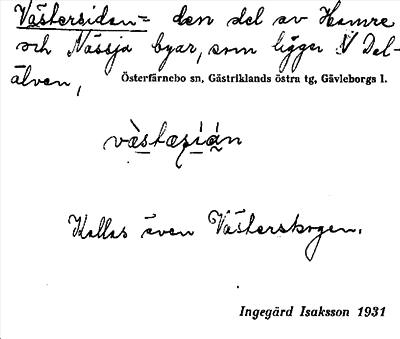 Västersidan = den del av Hamre
och Nässja byar, som ligger V Dal-
älven,
Österfärnebo sn, Gästriklands östra tg, Gävleborgs l.
Kallas även Västerskogen.
Ingegärd Isaksson 1931